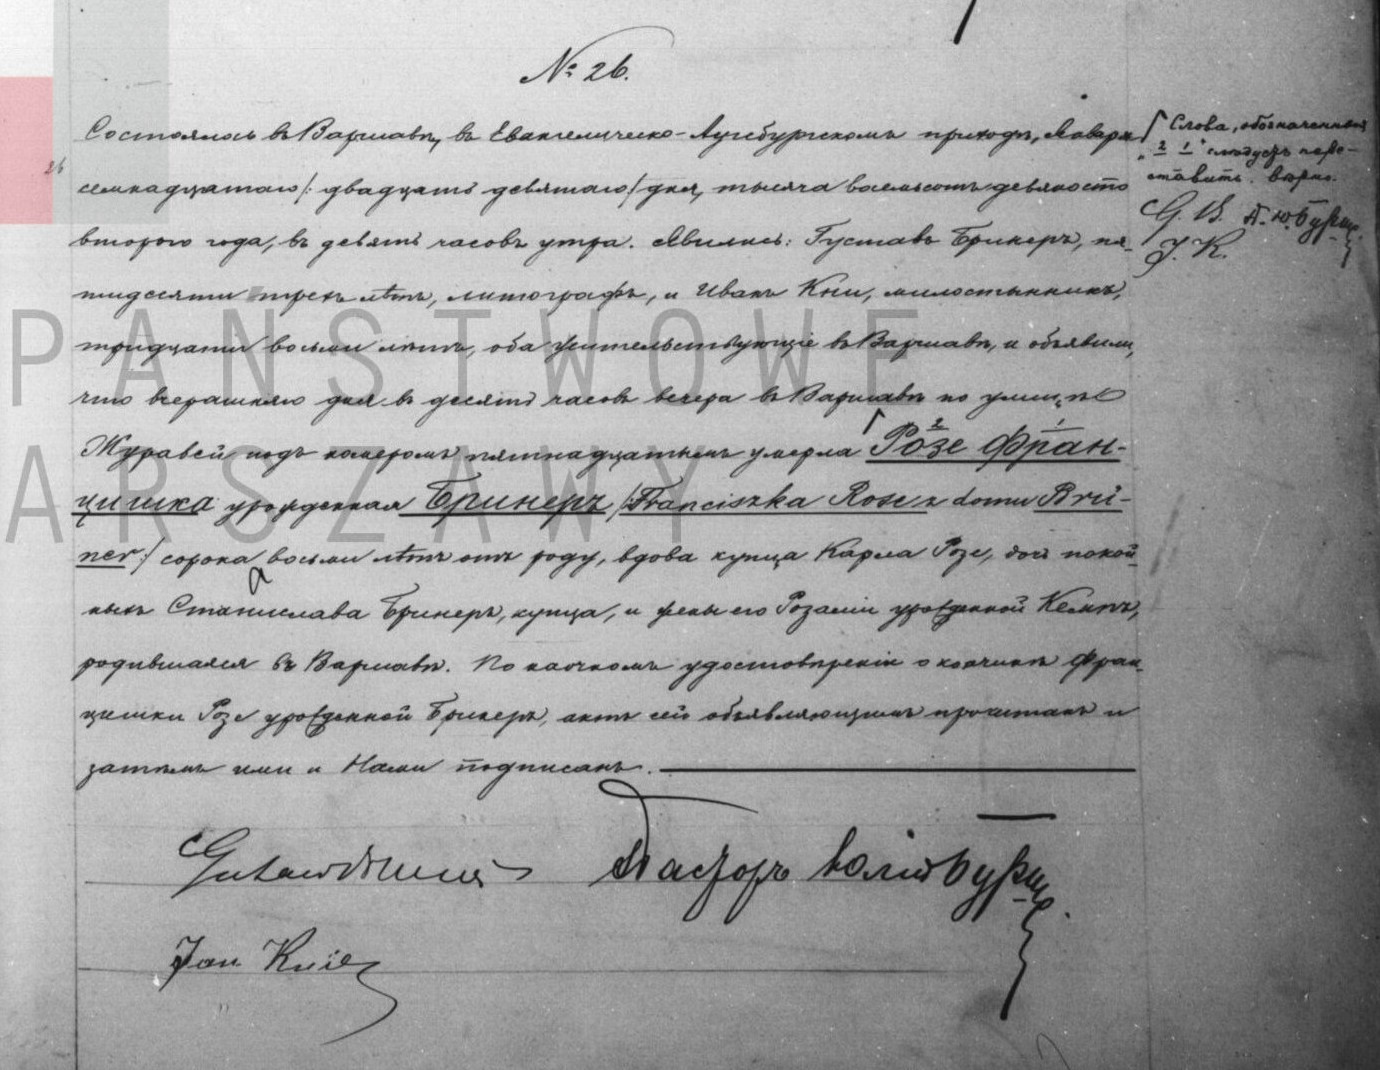 № 26.
Состоялось въ Варшавѣ, въ Евангелическо-Аугсбургскомъ приходѣ, Января
26
семнадцатаго /: двадцать девятаго :/ дня, тысяча восемьсотъ девяносто
второго года, въ девять часовъ утра. Явились: Густавъ Бринеръ, пя-
тидесяти трехъ лѣтъ, литографъ, и Иванъ Кни, милостынникъ,
тридцати восьми лѣтъ, оба жительствующіе въ Варшавѣ, и объявили,
что вчерашняго дня въ десять часовъ вечера въ Варшавѣ по улицѣ
Журавей подъ номеромъ пятнадцатымъ умерла ⌈ Розе 2 Фран- 1
цишка урожденная Бринеръ /: Franciszka Rose z domu Brü-
ner :/ сорока восьми лѣтъ отъ роду, вдова купца Карла Розе, дочь покой-
ныхъ Станислава Бринеръ, купца, и жены его Розаліи урожденной Кемпъ,
родившаяся въ Варшавѣ. По наочномъ удостовѣреніи о кончинѣ Фран-
цишки Розе урожденной Бринеръ, актъ сей объявляющимъ прочитанъ и
затѣмъ ими и Нами подписанъ.
⌈ Слова, обозначенныя
„ 2 1 “ слѣдуетъ пере-
ставить. Вѣрно.
G. B. П. Ю. Бурше.
J. K.
Gustaw Brüner Пасторъ Юлій Бурше.
Jan Knie
PAŃSTWOWE
ARSZAWY